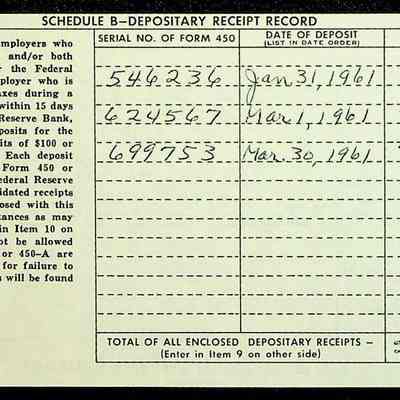 SCHEDULE B—DEPOSITARY RECEIPT RECORD
mployers who
and/or both
r the Federal
ployer who is
axes during a
within 15 days
Reserve Bank,
posits for the
its of $100 or
Each deposit
Form 450 or
ederal Reserve
idated receipts
osed with this
tances as may
in Item 10 on
ot be allowed
or 450-A are
for failure to
s will be found
SERIAL NO. OF FORM 450
DATE OF DEPOSIT
(LIST IN DATE ORDER)
546236 Jan 31, 1961
624567 Mar 1, 1961
699753 Mar. 30, 1961
TOTAL OF ALL ENCLOSED DEPOSITARY RECEIPTS —
(Enter in Item 9 on other side)